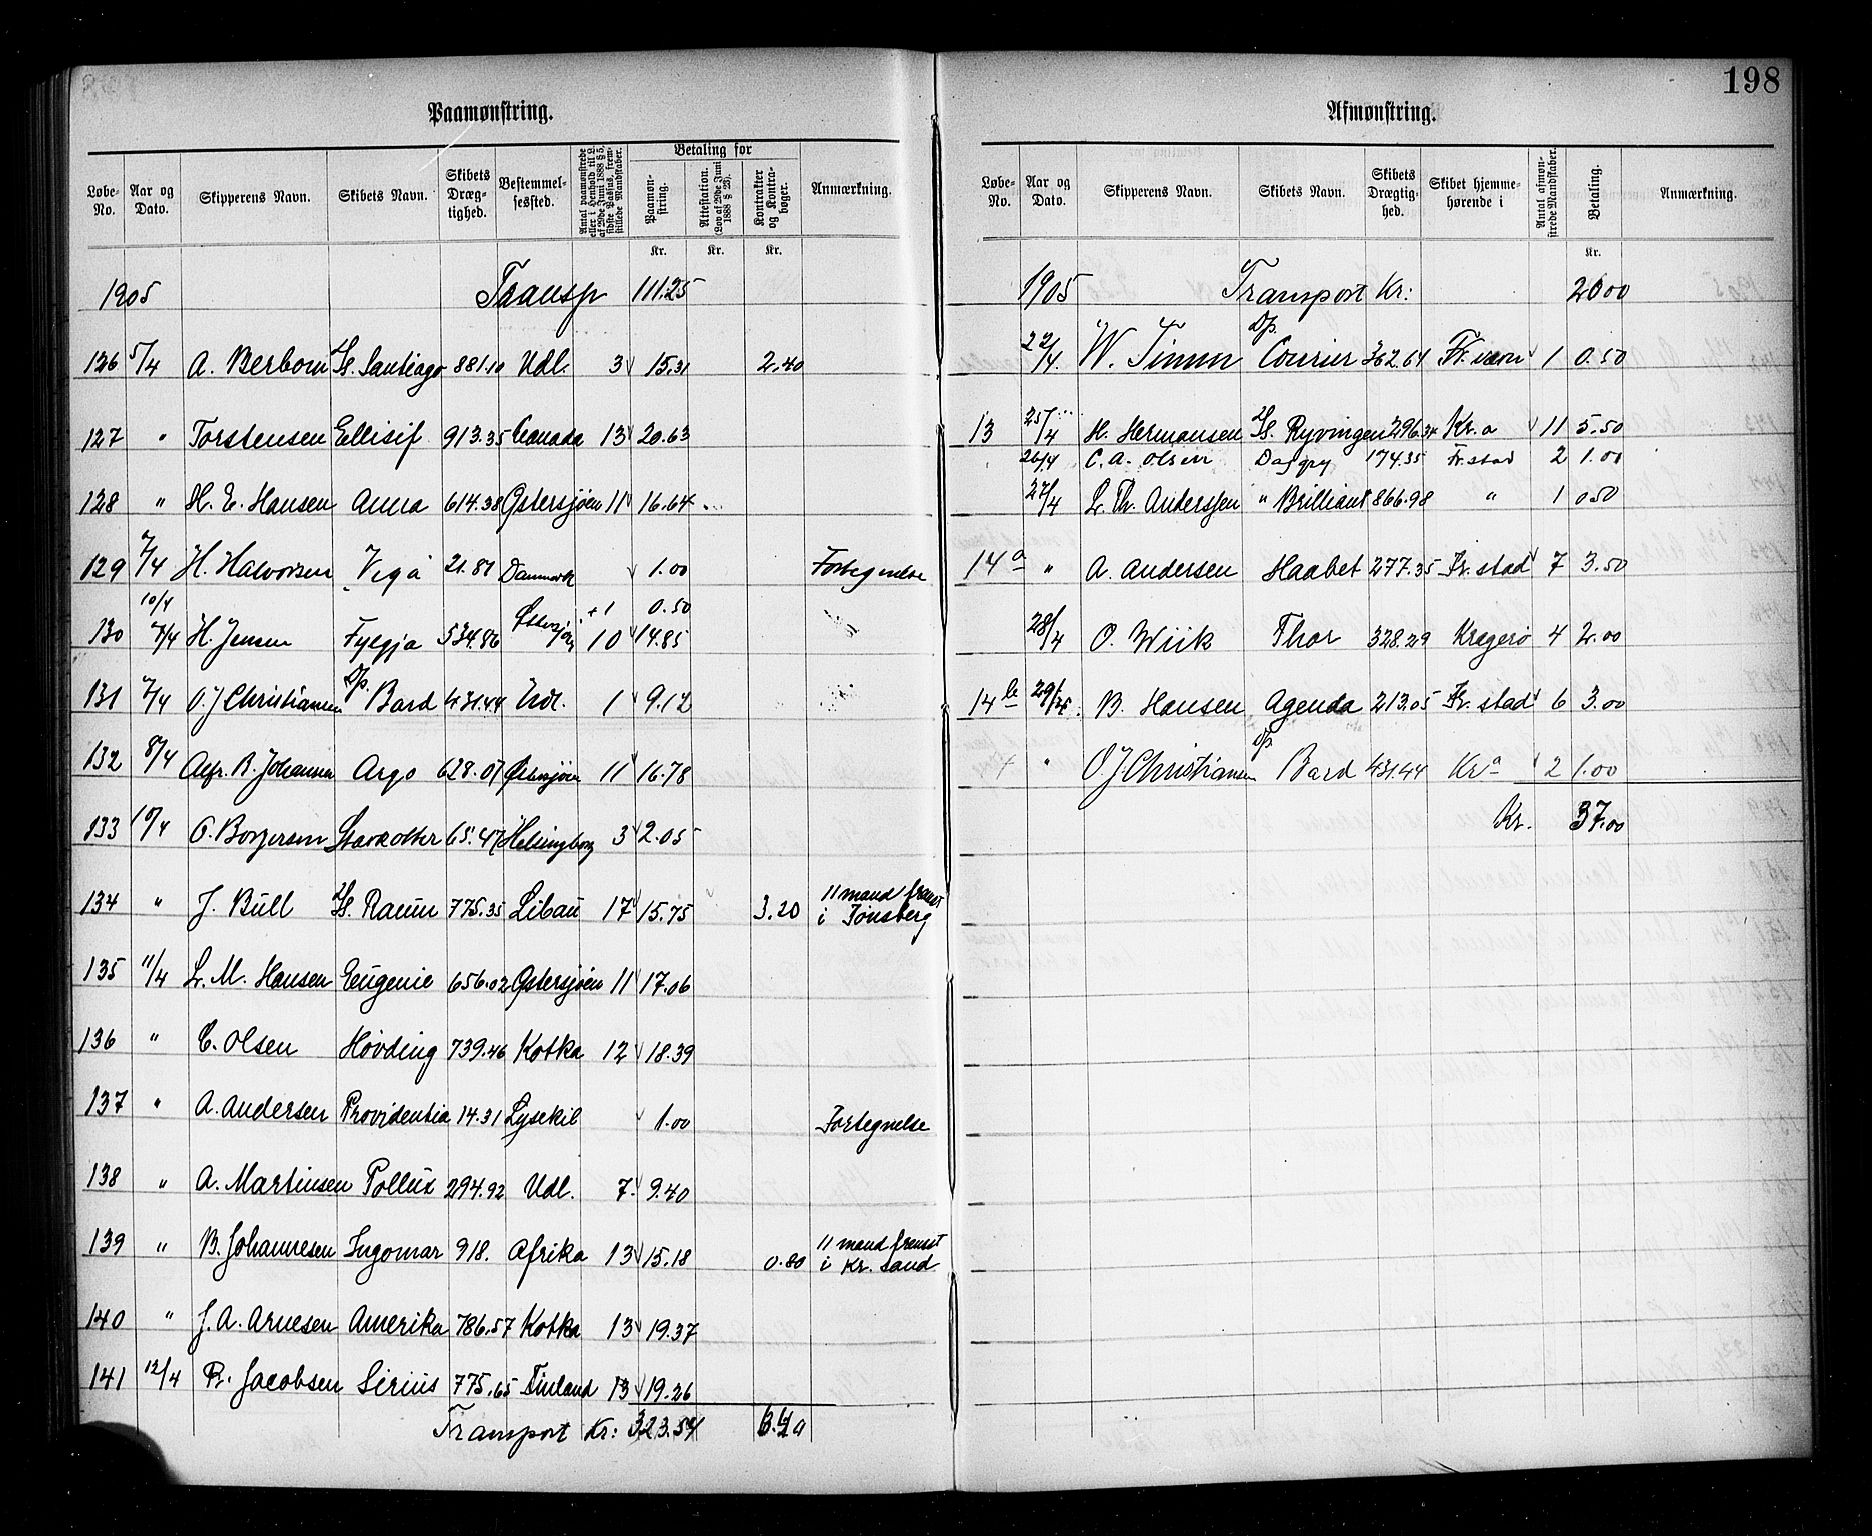 198
Paamønstring.
Løbe-No. Aar og Dato. Skipperens Navn. Skibets Navn. Skibets Dræg-tighed. Bestemmel-sessted. Antal paamønstrede eller i Henhold til L. af 29de Juni 1888 § 5, sidste Passus, frem-stillede Mandskaber. Betaling for Paamøn-string. Attestation. (Lov af 29de Juni 1888 § 25). Kontrakter og Kontra-bøger. Anmærkning.
Kr. Kr. Kr.
1905 Transp 111.25
126 5/4 A. Berbom Ss. Santiago 881.10 Udl. 3 15.31 2.40
127 " Torstensen Ellisif 913.35 Canada 13 20.63
128 " H. E. Hansen Anna 614.38 Østersjøen 11 16.64
129 7/4 H. Halvorsen Vega 21.87 Danmark 1.00 Fortegnelse
10/4 +1 0.50
130 7/4 H. Jensen Fylgja 534.86 Østersjøen 10 14.85
131 7/4 O. J Christiansen Dp. Bard 431.44 Udl. 1 9.12
132 8/4 Alfr. B. Johansen Argo 628.07 Østersjøen 11 16.78
133 10/4 O. Borgersen Starkotter 65.47 Helsingborg 3 2.05
134 " J. Bull Ss. Raum 775.35 Libau 17 15.75 3.20 11 mand fremst i Tønsberg
135 11/4 L. M. Hansen Eugenie 656.02 Østersjøen 11 17.06
136 " C. Olsen Høvding 739.46 Kotka 12 18.39
137 " A. Andersen Providentia 14.31 Lysekil 1.00 Fortegnelse
138 " A. Martinsen Pollux 294.92 Udl. 7 9.40
139 " B. Johannesen Ingomar 918. Afrika 13 15.18 0.80 11 mand fremst i Kr. sand
140 " J. A. Arnesen Amerika 786.57 Kotka 13 19.37
141 12/4 R. Jacobsen Sirius 775.65 Finland 13 19.26
Transport Kr: 323.54 6.40
Afmønstring.
Løbe-No. Aar og Dato. Skipperens Navn. Skibets Navn. Skibets Drægtig-hed. Skibet hjemme-hørende i Antal afmøn-strede Mandskaber. Betaling. Anmærkning.
Kr.
1905 Transport Kr: 20.00
22/4. W. Timm Dp. Courier 362.64 Fr.værn 1 0.50
13 25/4 H. Hermansen Ss. Ryvingen 296.34 Kr.a 11 5.50
26/4 C. A. Olsen Daggry 174.35 Fr.stad 2 1.00
27/4 L. Th. Anderssen " Brilliant 866.98 " 1 0.50
14a " A. Andersen Haabet 277.35 Fr. stad 7 3.50
28/4 O. Wiik Thor 328.29 Kragerø 4 2.00
14b 29/4 B. Hansen Agenda 213.05 Fr. stad 6 3.00
" O. J Christiansen Dp. Bard 431.44 Kra 2 1.00
Kr. 37.00